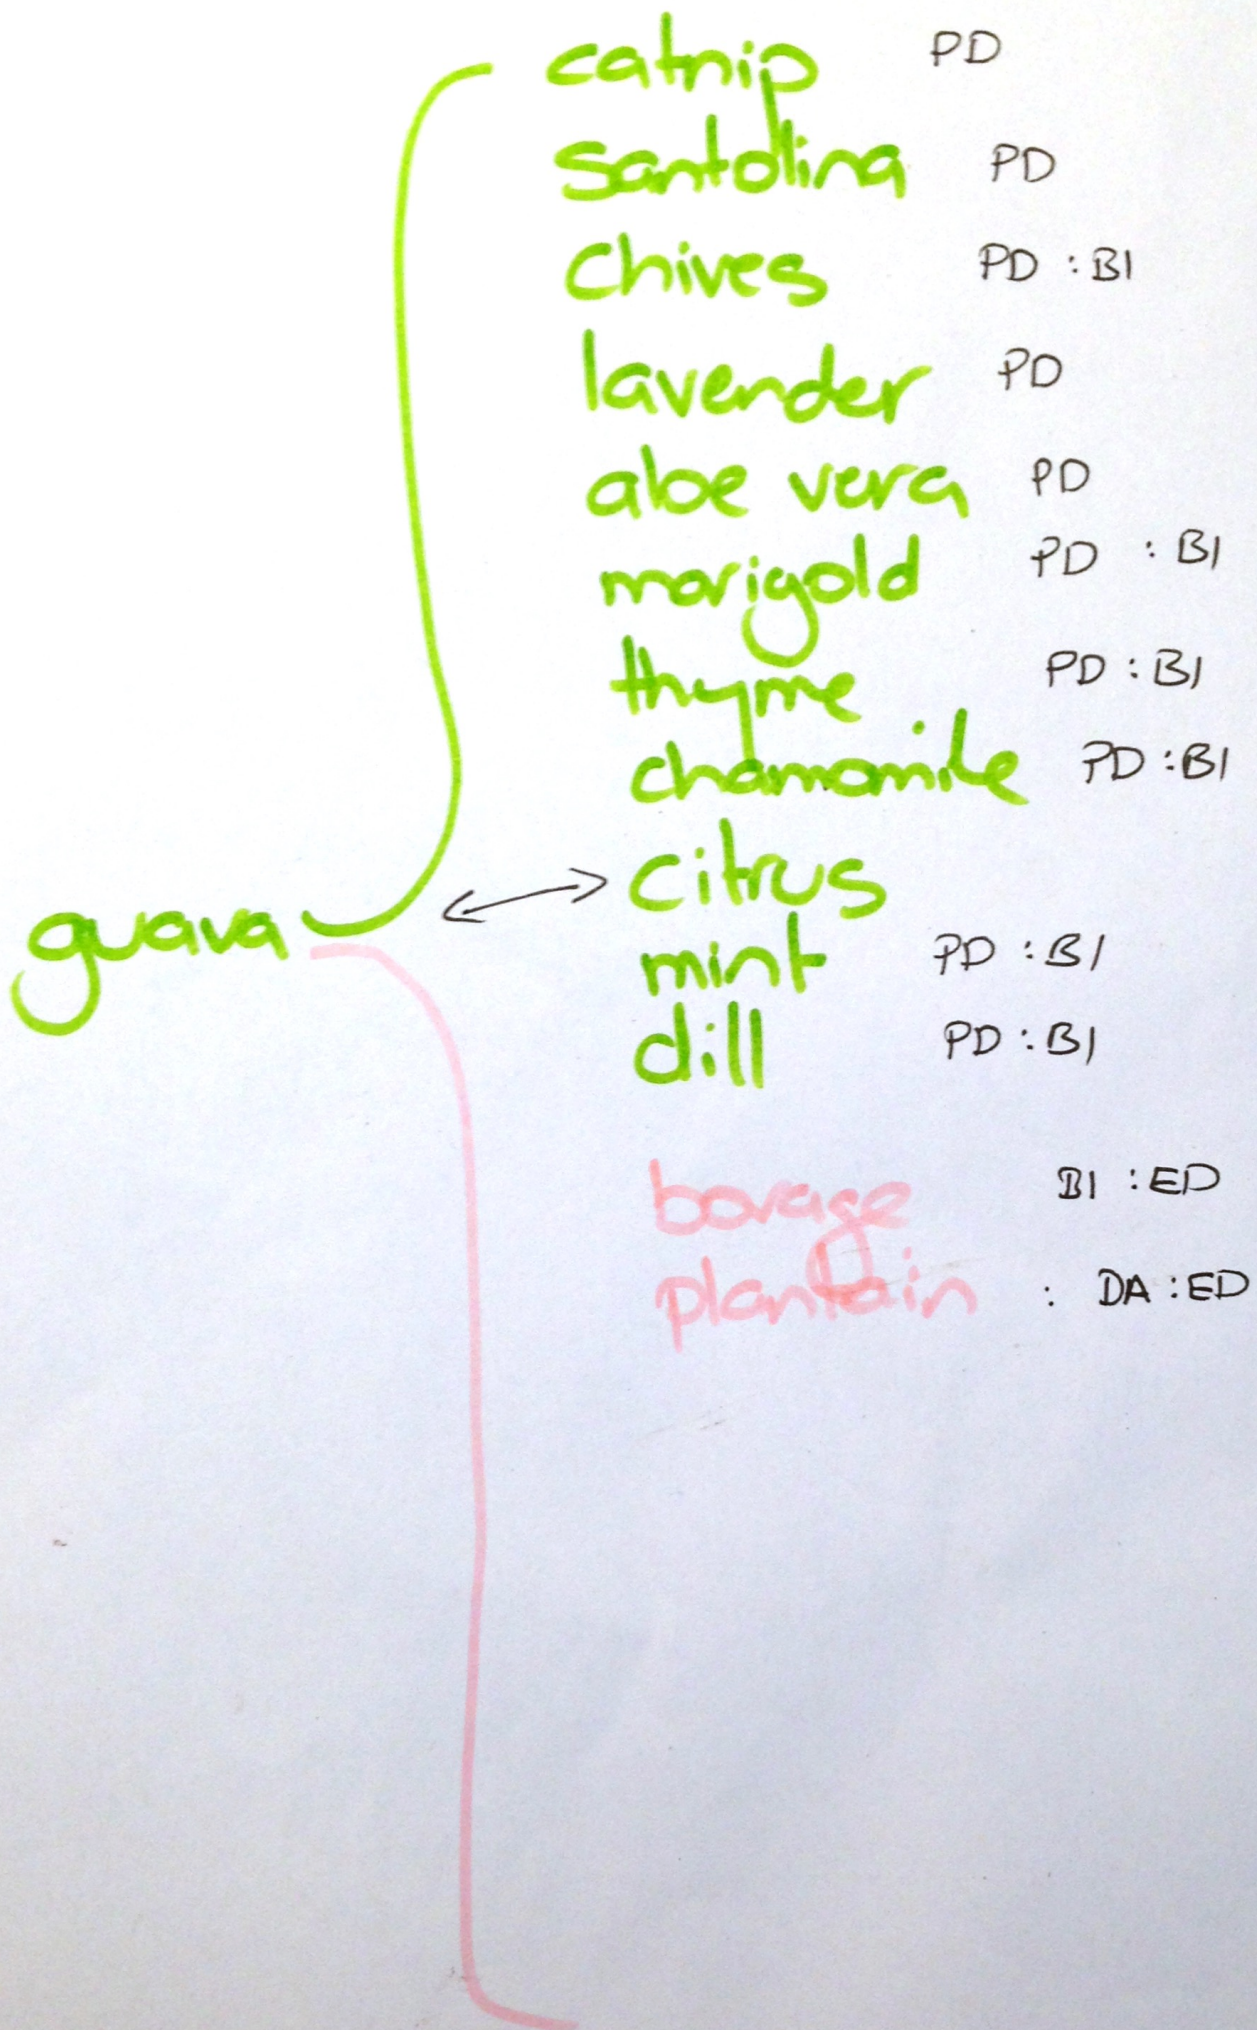 catnip PD
santolina PD
Chives PD : BI
lavender PD
aloe vera PD
marigold PD : BI
thyme PD : BI
chamomile PD : BI
citrus
guava
mint PD : BI
dill PD : BI
borage BI : ED
plantain : DA : ED